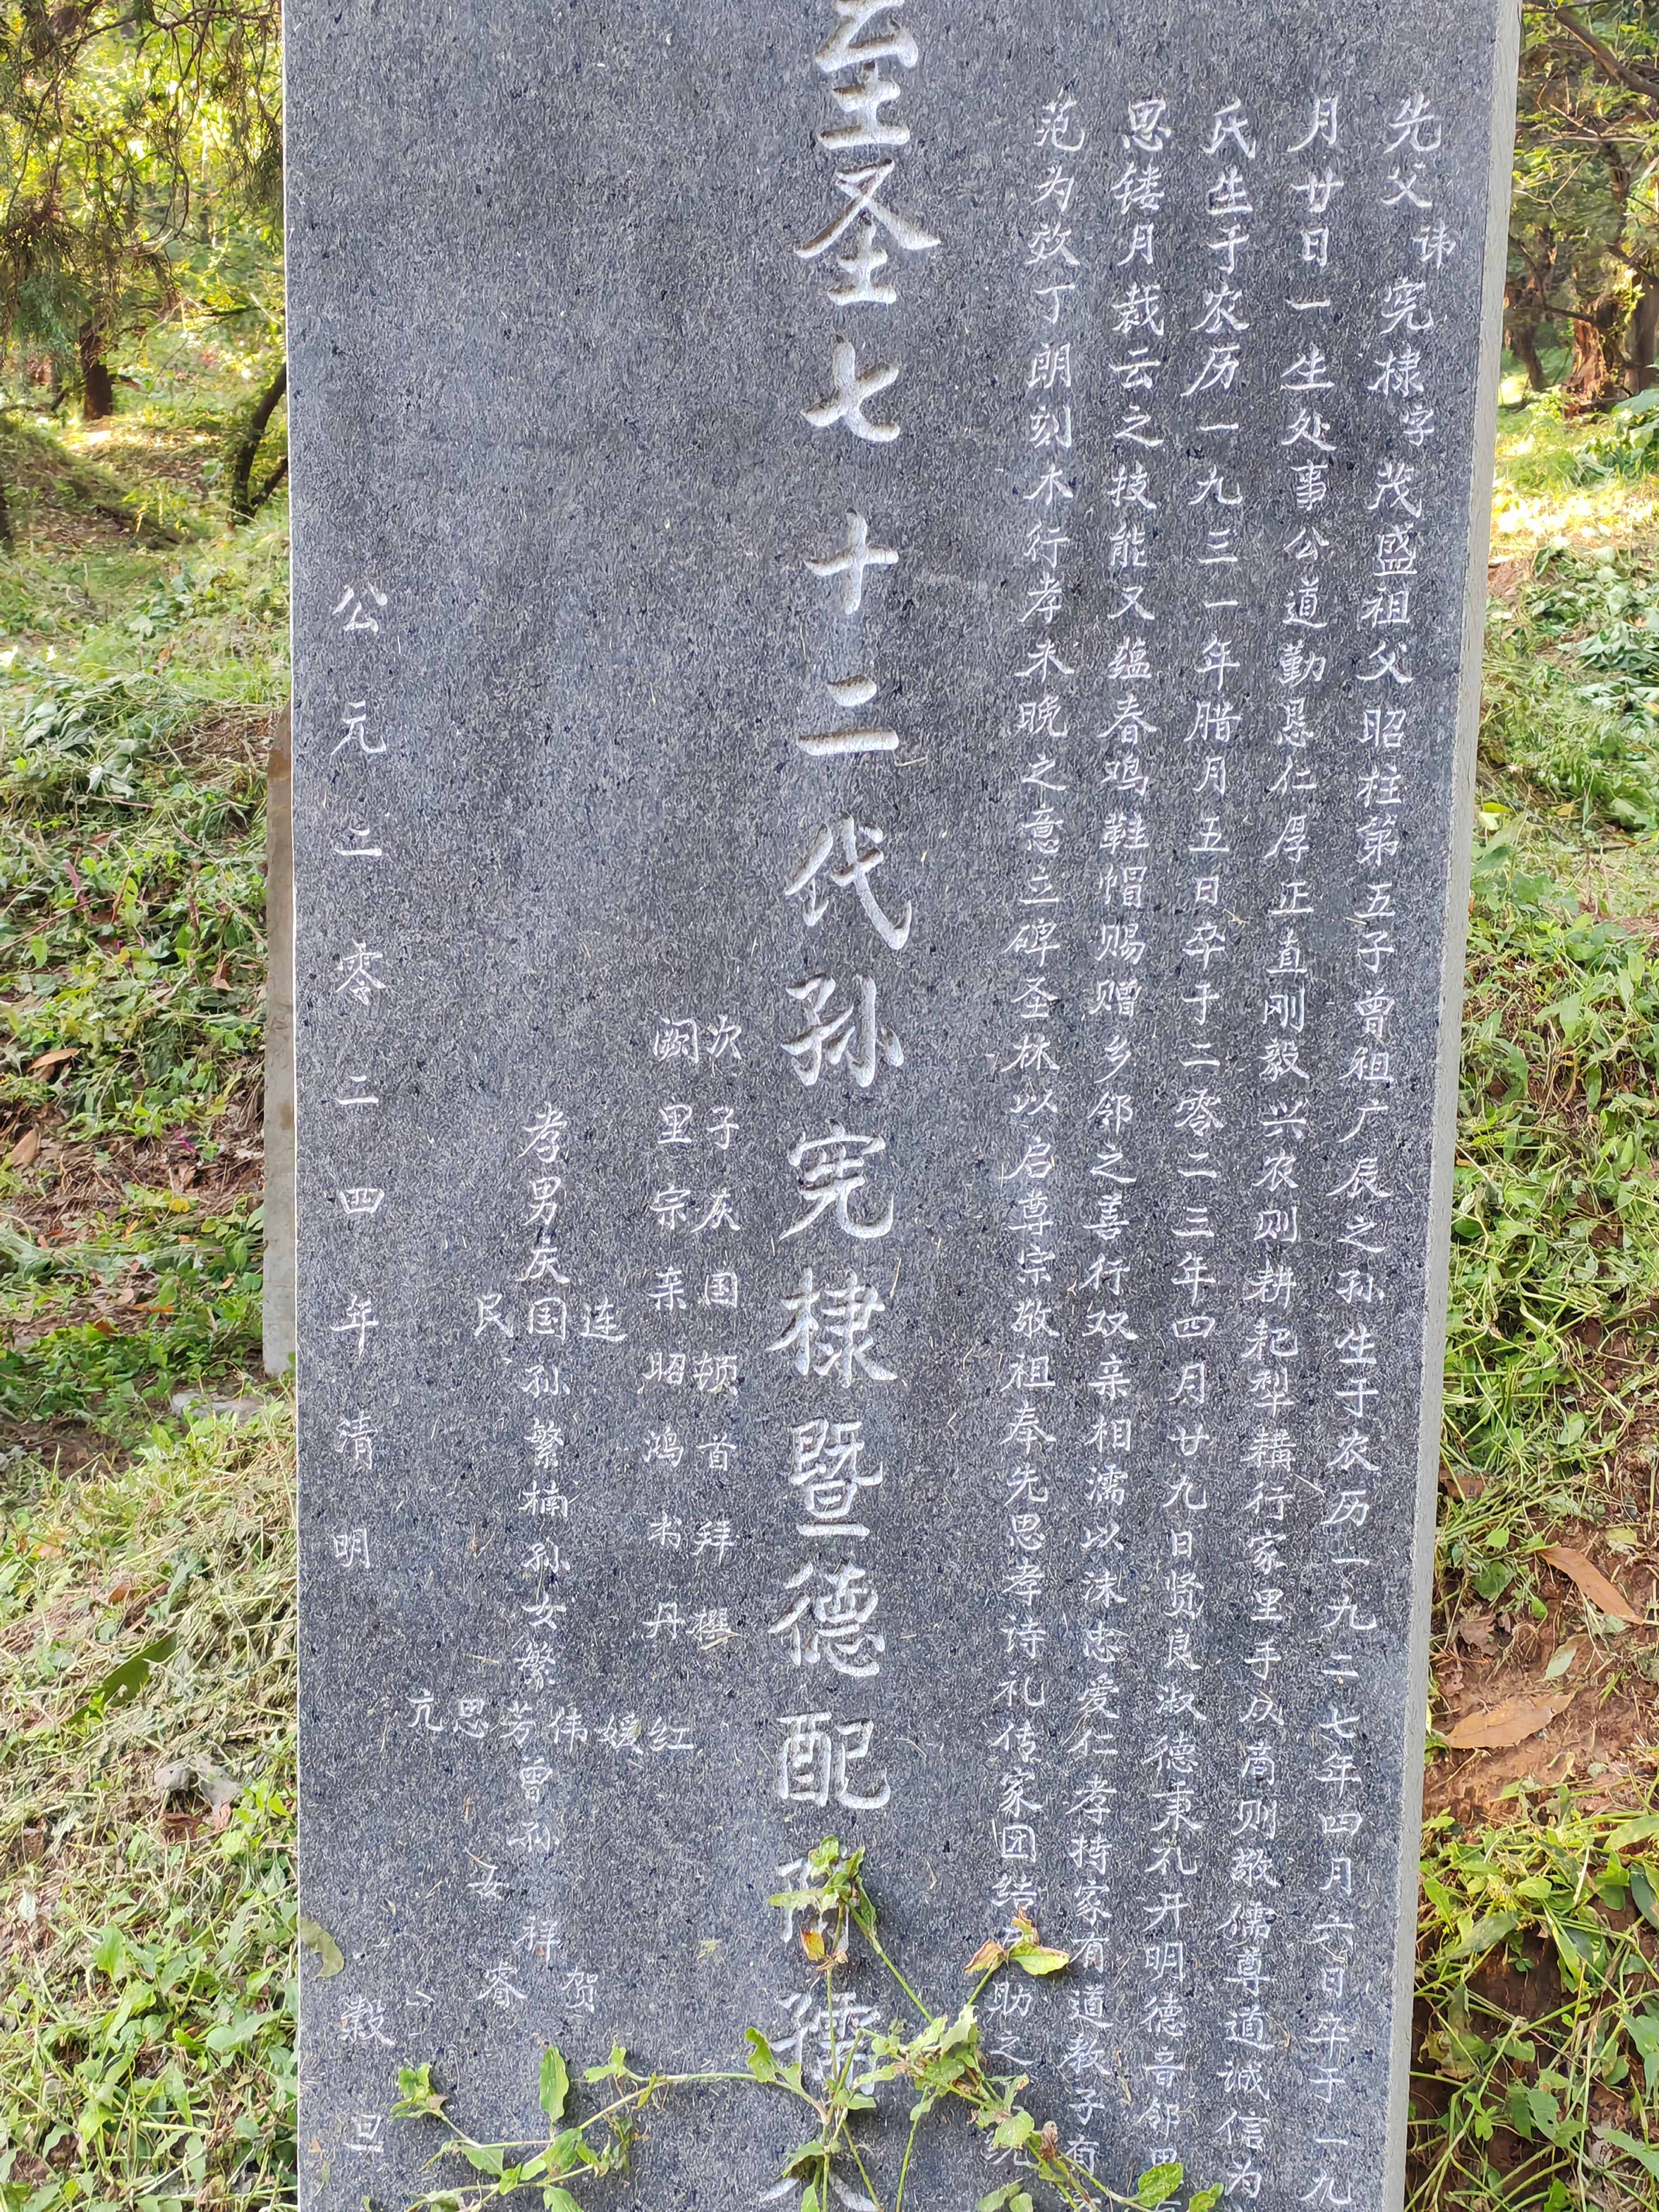 先父讳宪棣字茂盛祖父昭柱第五子曾祖广辰之孙生于农历一九二七年四月六日卒于一九
月廿日一生处事公道勤恳仁厚正直刚毅兴农则耕耙犁耩行家里手从商则敬儒尊道诚信为
氏生于农历一九三一年腊月五日卒于二零二三年四月廿九日贤良淑德秉礼开明德音邻里
思镂月裁云之技能又蕴春鸡鞋帽赐赠乡邻之善行双亲相濡以沫忠爱仁孝持家有道教子有
范为效丁朗刻木行孝未晚之意立碑圣林以启尊宗敬祖奉先思孝诗礼传家团结互助之
至圣七十二代孙宪棣暨德配孺
次子庆国顿首拜撰
阙里宗亲昭鸿书丹
孝男庆国连民孙繁楠孙女繁红媛伟芳思亢曾孙女祥贺睿
公元二零二四年清明榖旦